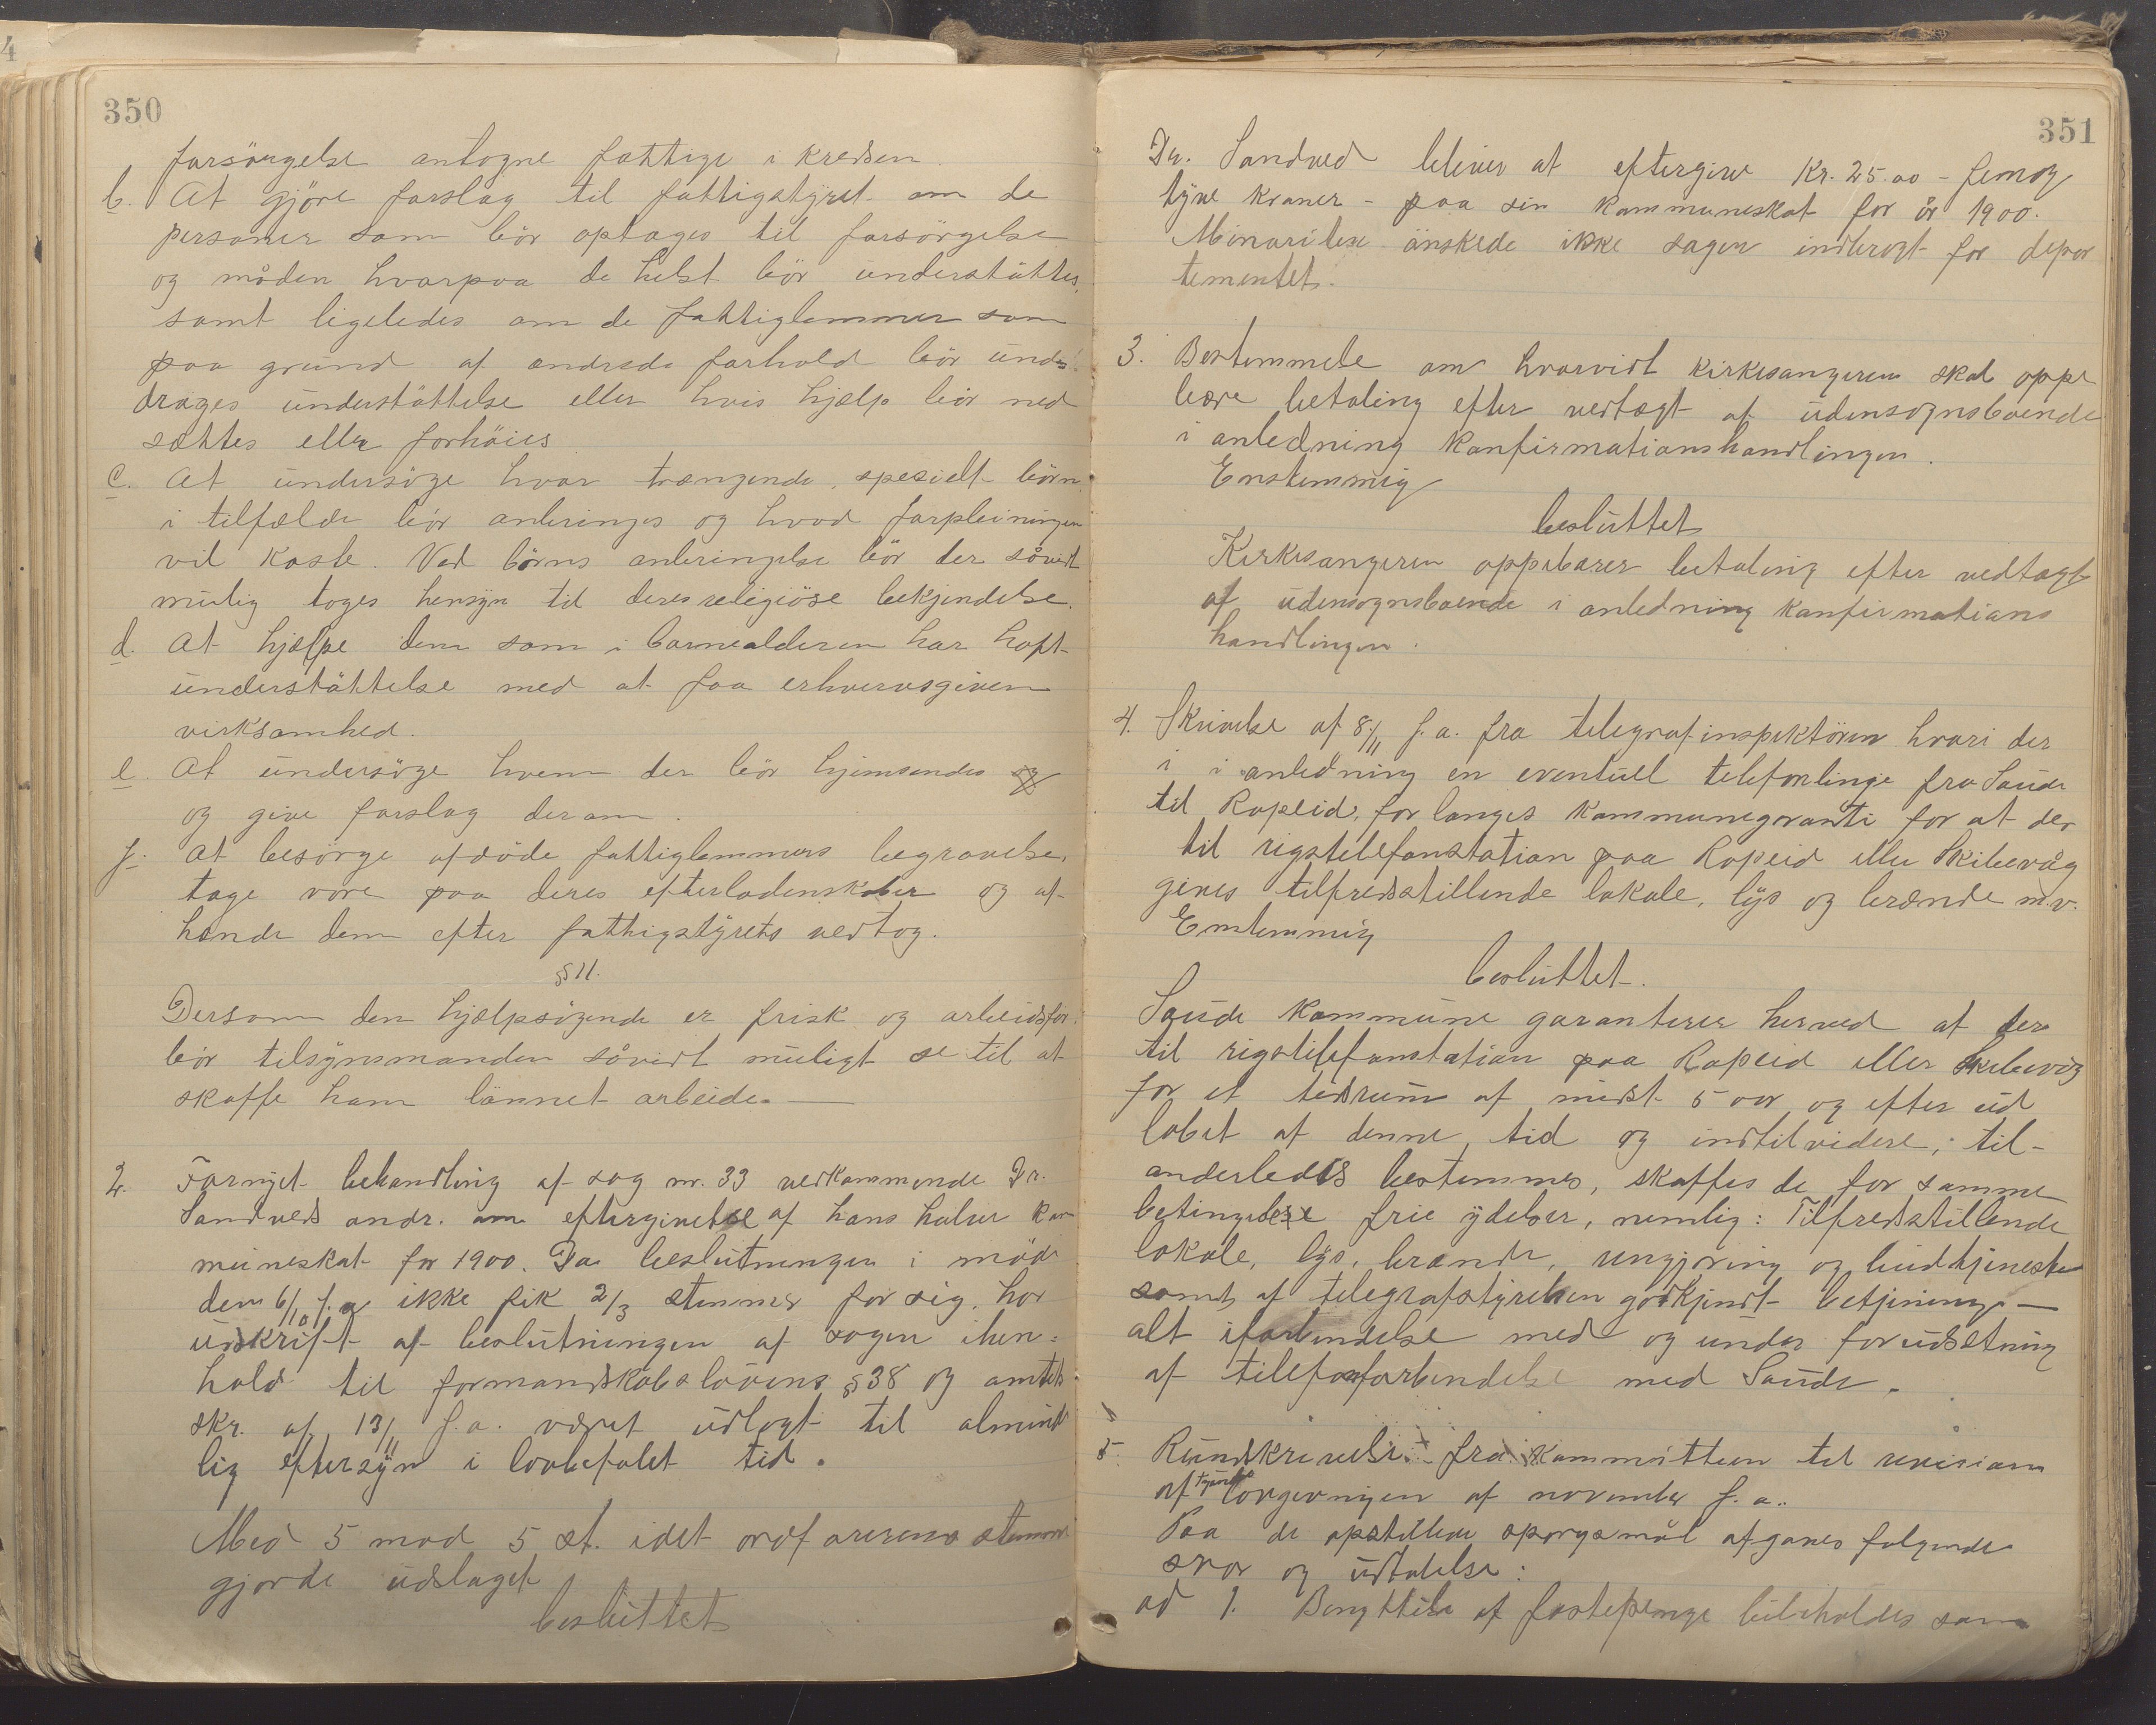 350
forsörgelse antagne fattige i kredsen.
b. At gjöre forslag til fattigstyret om de
personer som bör optages til forsörgelse
og måden hvorpaa de helst bör understöttes,
samt ligeledes om de fattiglemmer som
paa grund af ændrede forhold bör und-
drages understöttelse eller hvis hjælp bör ned
sættes eller forhöies
c. At undersöge hvor trængende, spesielt börn
i tilfælde bör anbringes og hvad forpleiningen
vil koste. Ved börns anbringelse bör der såvidt
mulig tages hensyn til deres religiöse bekjendelse.
d. At hjælpe dem som i barnealderen har havt
understöttelse med at faa erhvervsgiven
virksomhed.
e. At undersöge hvem der bör hjemsendes og
og give forslag derom.
f. At besörge afdöde fattiglemmers begravelse,
tage vare paa deres efterladenskaber og af-
hænde dem efter fattigstyrets vedtag.
§ 11.
Dersom den hjælpsögende er frisk og arbeidsför
bör tilsynsmanden såvidt muligt se til at
skaffe ham lönnet arbeide. —
2. Fornyet behandling af sag nr. 33 vedkommende Dr.
Sandveds andr. om eftergivelse af hans halve kom
muneskat for 1900. Da beslutningen i möde
den 6/10 f.a ikke fik 2/3 stemmer for sig, har
udskrift af beslutningen af sagen i hen-
hold til formandskabslovens § 38 og amtets
skr. af 13/11 f.a. været udlagt til almind
lig eftersyn i lovbefalet tid.
Med 5 mod 5 st. idet ordförerens stemme
gjorde udslaget
besluttet
351
Dr. Sandved bliver at eftergive Kr. 25.00 - femog
tyve kroner - paa sin kommuneskat for år 1900.
Minoriteten önskede ikke sagen indbragt for depar
tementet.
3. Bestemmelse om hvorvidt kirkesangeren skal oppe
bære betaling efter vedtægt af udensognsboende
i anledning konfirmationshandlingen.
Enstemmig
besluttet
Kirkesangeren oppebærer betaling efter vedtægt
af udensognsboende i anledning konfirmations
handlingen.
4. Skrivelse af 8/11 f.a. fra telegrafinspektören hvori der
i i anledning en eventuell telefonlinje fra Saude
til Ropeid, forlanges kommunegaranti for at der
til rigstelefonstation paa Ropeid eller Skibevåg
gives tilfredsstillende lokale, lys og brænde m.v.
Enstemmig
besluttet.
Saude kommune garanterer herved at der
til rigstelefonstation paa Ropeid eller Skibevåg
for et tidsrum af mindst 5 aar og efter ud
löbet af denne tid og indtilvidere, til-
anderledes bestemmes, skaffes de for samme
betingelese frie ydelser, nemlig: Tilfredsstillende
lokale, lys, brænde, rengjöring og budtjeneste
samt af telegrafstyrelsen godkjendt betjening —
alt iforbindelse med og under forudsetning
af telefonforbindelse med Saude.
5. Rundskrivelse fra kommitteen til revision
af lovgivningen af november f.a..
Paa de opstillede spörgsmål afgaves fölgende
svar og udtalelse:
ad 1. Benyttelse af fæstepenge bibeholdes som